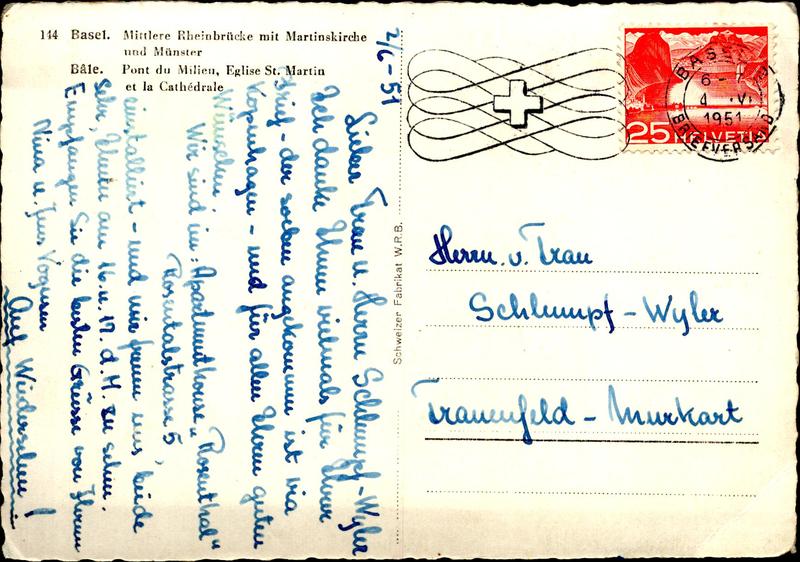 144 Basel. Mittlere Rheinbrücke mit Martinskirche
und Münster
Bâle. Pont du Milieu, Eglise St. Martin
et la Cathédrale
2/6-51
Lieber Frau u. Herrn Schlumpf-Wyler
Ich danke Ihnen vielmals für Ihrer
Brief - der soeben angekommen ist via
Kopenhagen - und für allen Ihren guten
Wünschen.
Wir sind in: Aparmenthouse „Rosenthal"
Rosentalstrasse 5,
einstalliert - und wir freuen uns beide
sehr, Ihnen am 16. u. 17. d. M. zu sehen.
Empfangen Sie die besten Grüsse von Ihren
Nina u. Jens
Auf Wiedersehen!
Schweizer Fabrikat W.R.B.
BASEL
6-
4. VI.
1951
BRIEFVERSAND
25 HELVETIA
Herrn. u. Frau
Schlumpf-Wyler
Frauenfeld - Murkart